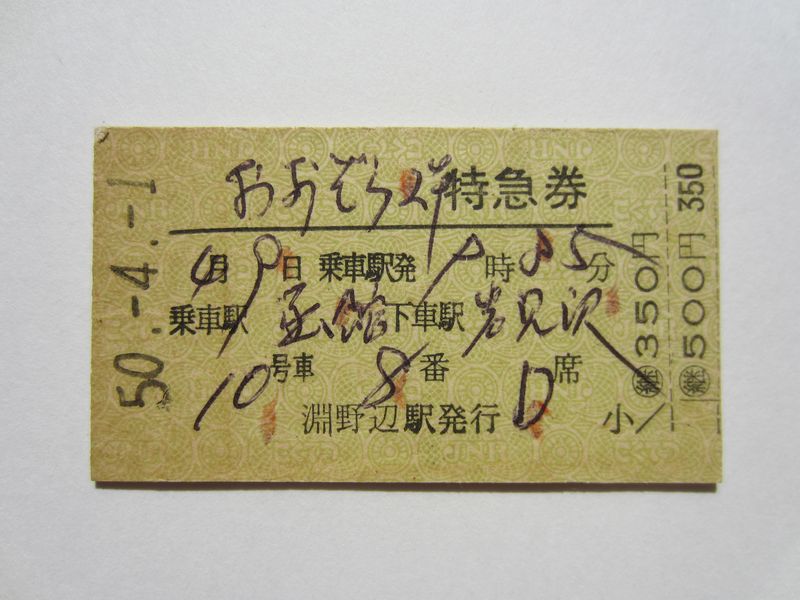 50.-4.-1
おおぞら2号 特急券
4月9日 乗車駅発 時05分
乗車駅 函館 下車駅 岩見沢
10号車 8番 D席
淵野辺駅発行 小
継350円
継500円 350